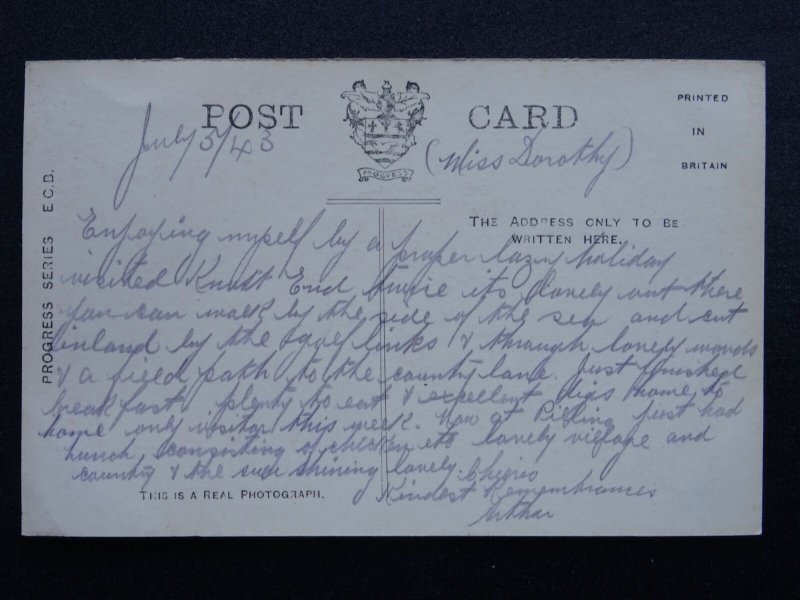 POST CARD
PRINTED
IN
BRITAIN
PROGRESS
PROGRESS SERIES E.C.B.
THE ADDRESS ONLY TO BE
WRITTEN HERE.
July 5/43
(Miss Dorothy)
Enjoying myself by a proper lazy holiday
visited Knott End twice its lovely out there
you can walk by the side of the sea and cut
inland by the golf links & through lovely woods
& a field path to the country lane. Just finished
breakfast plenty to eat & excellent digs home to
home only visitor this week. Now at Pilling just had
lunch, consisting of chicken etc lovely village and
country & the sun shining lovely. Cheerio
Kindest Remembrances
Arthur
THIS IS A REAL PHOTOGRAPH.